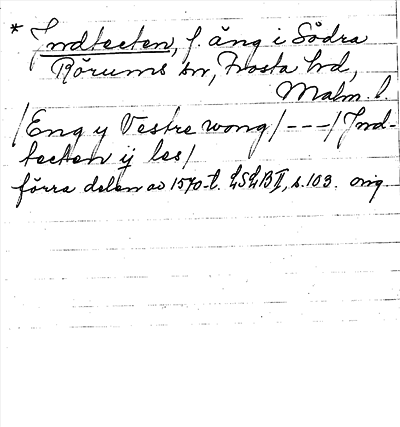 * Indtecten, f. äng i Södra
Rörums sn, Frosta hd,
Malm. l.
/Eng y Vestre wong/---/Ind-
tecten ij les/
förra delen av 1570-t. LSLB II, s. 103. orig.